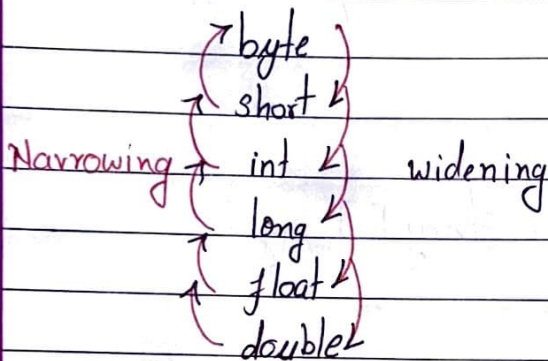 byte
short
Narrowing int widening
long
float
double